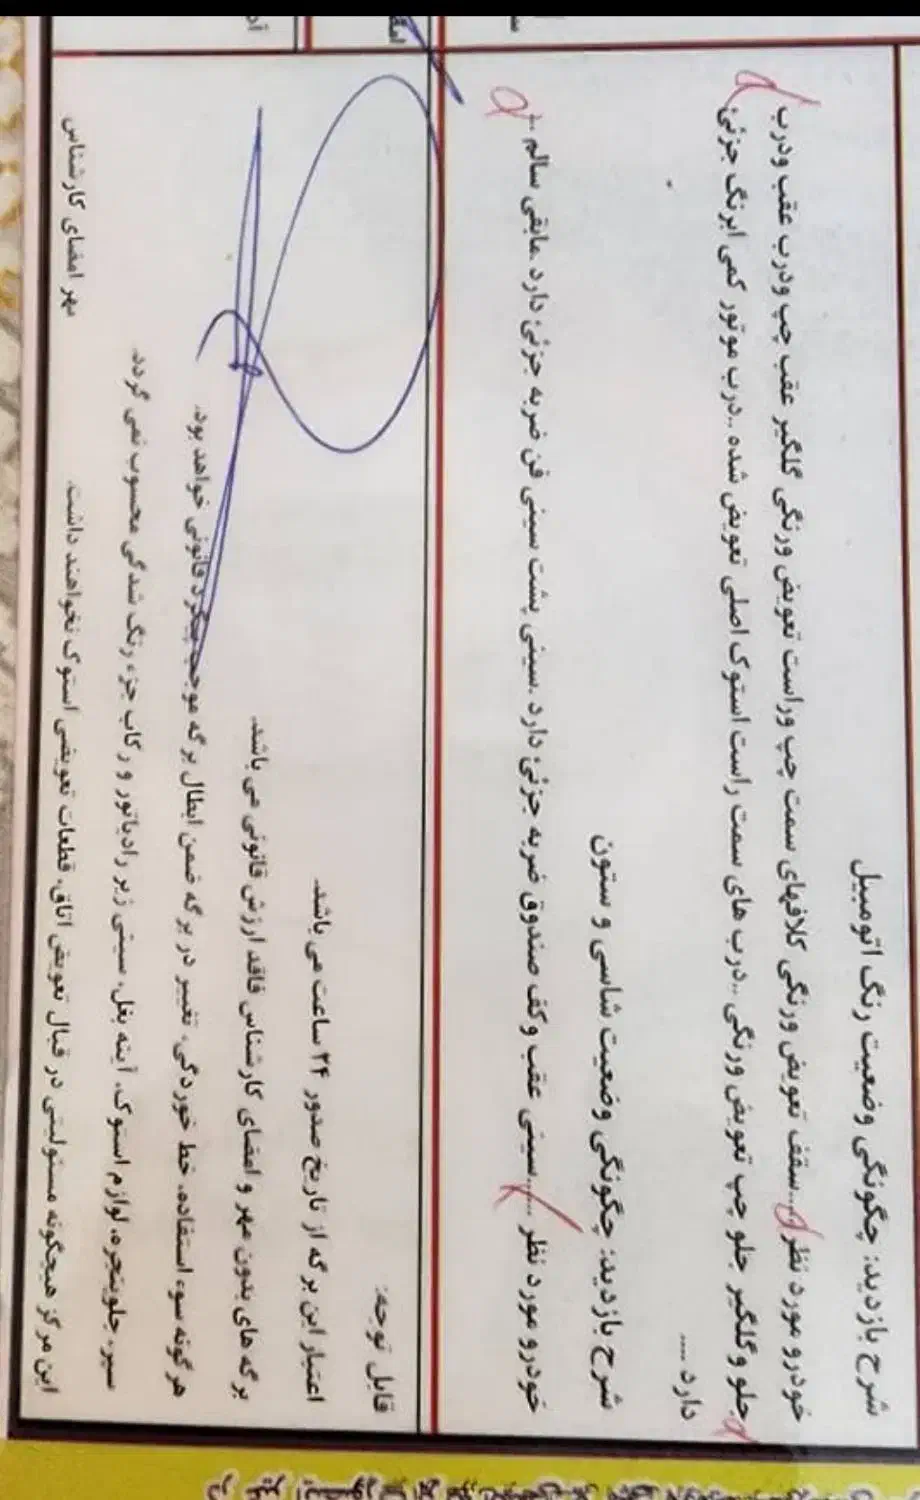 شرح بازدید: چگونگی وضعیت رنگ اتومبیل
خودرو مورد نظر ....سقف تعویض ورنگی کلافهای سمت چپ وراست تعویض ورنگی گلگیر عقب چپ ودرب عقب ودرب
جلو وگلگیر جلو چپ تعویض ورنگی ..درب های سمت راست استوک اصلی تعویض شده ..درب موتور کمی ابرنگ جزئی
دارد ....
شرح بازدید: چگونگی وضعیت شاسی و ستون
خودرو مورد نظر ....سینی عقب وکف صندوق ضربه جزئی دارد .سینی پشت سینی فن ضربه جزئی دارد .مابقی سالم ..
قابل توجه:
اعتبار این برگه از تاریخ صدور ۲۴ ساعت می باشد.
برگه های بدون مهر و امضای کارشناس فاقد ارزش قانونی می باشد.
هرگونه سوء استفاده، خط خوردگی، تغییر در برگه ضمن ابطال برگه موجب پیگرد قانونی خواهد بود.
سپر، جلوپنجره، لوازم استوک، آینه بغل، سینی زیر رادیاتور و رکاب جزء رنگ شدگی محسوب نمی گردد.
این مرکز هیچگونه مسئولیتی در قبال تعویض اتاق، قطعات تعویضی استوک نخواهند داشت.
مهر امضای کارشناس